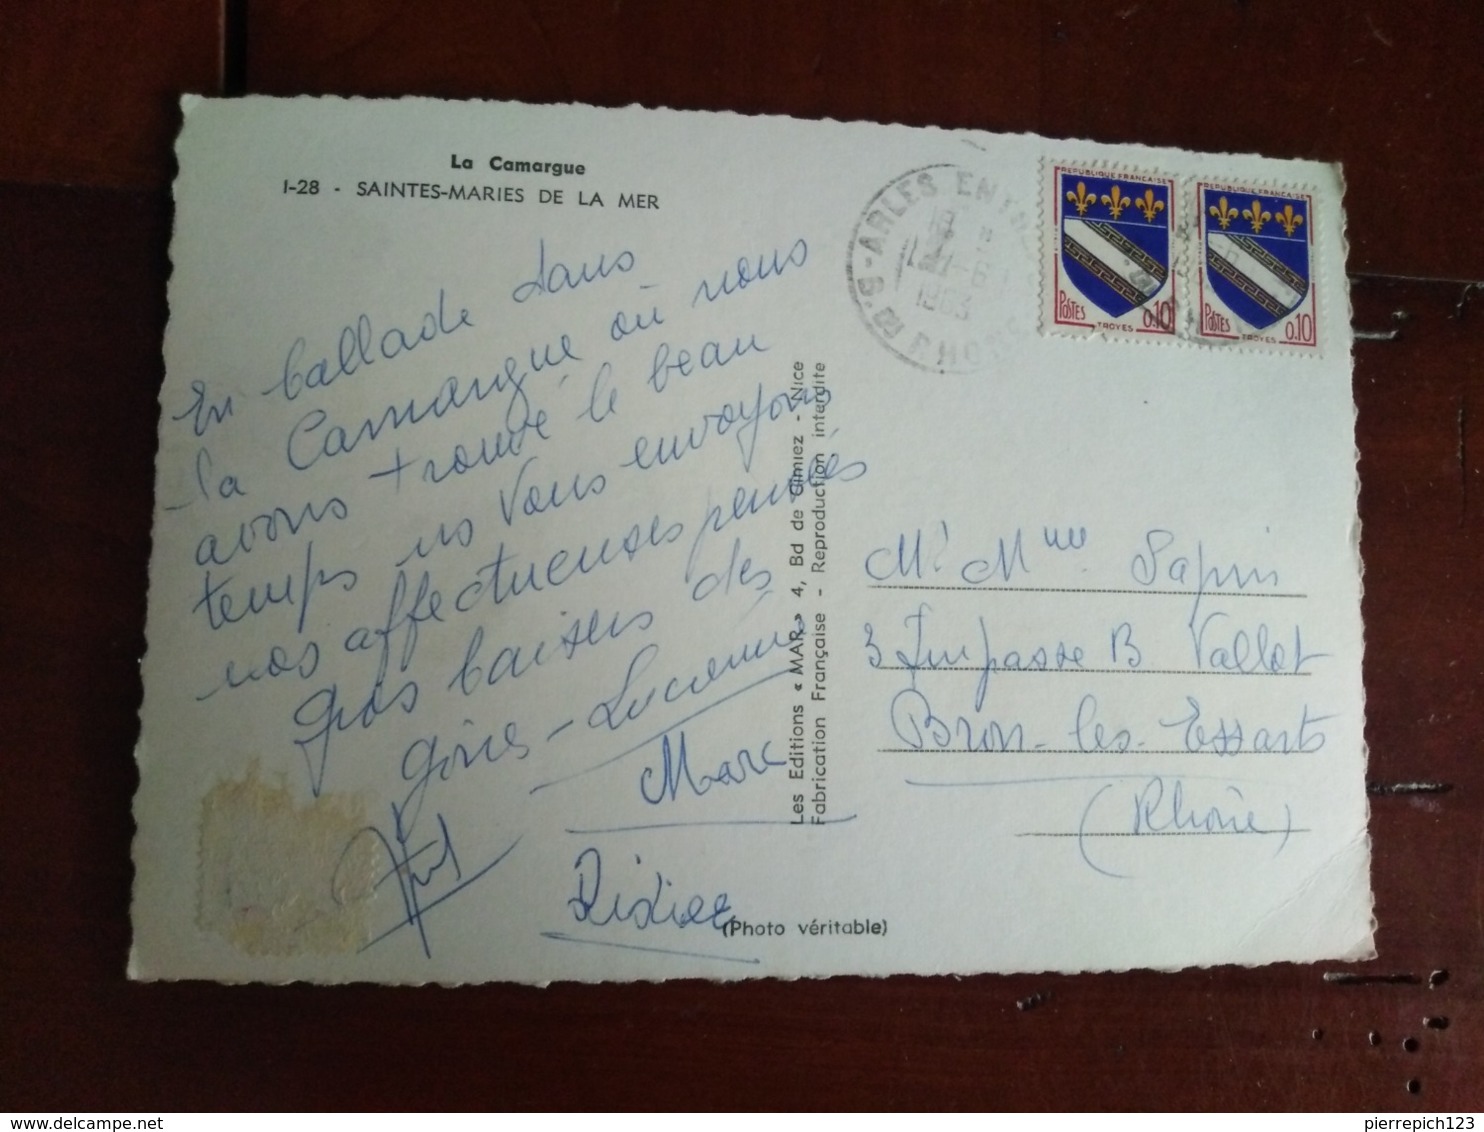 La Camargue
I-28 - SAINTES-MARIES DE LA MER
En ballade dans
la Camargue où nous
avons trouvé le beau
temps ns vous envoyons
nos affectueuses pensées
gros baisers des
gônes - Lucienne
Marc
Didier
(Photo véritable)
Les Editions « MAR » 4, Bd de Cimiez - Nice
Fabrication Française - Reproduction interdite
ARLES
1963
RHONE
REPUBLIQUE FRANÇAISE
POSTES 0,10
TROYES
REPUBLIQUE FRANÇAISE
POSTES 0,10
TROYES
Mr Mme Sapin
3 Impasse B Vallot
Bron-les-Essarts
(Rhône)
pierrepich123